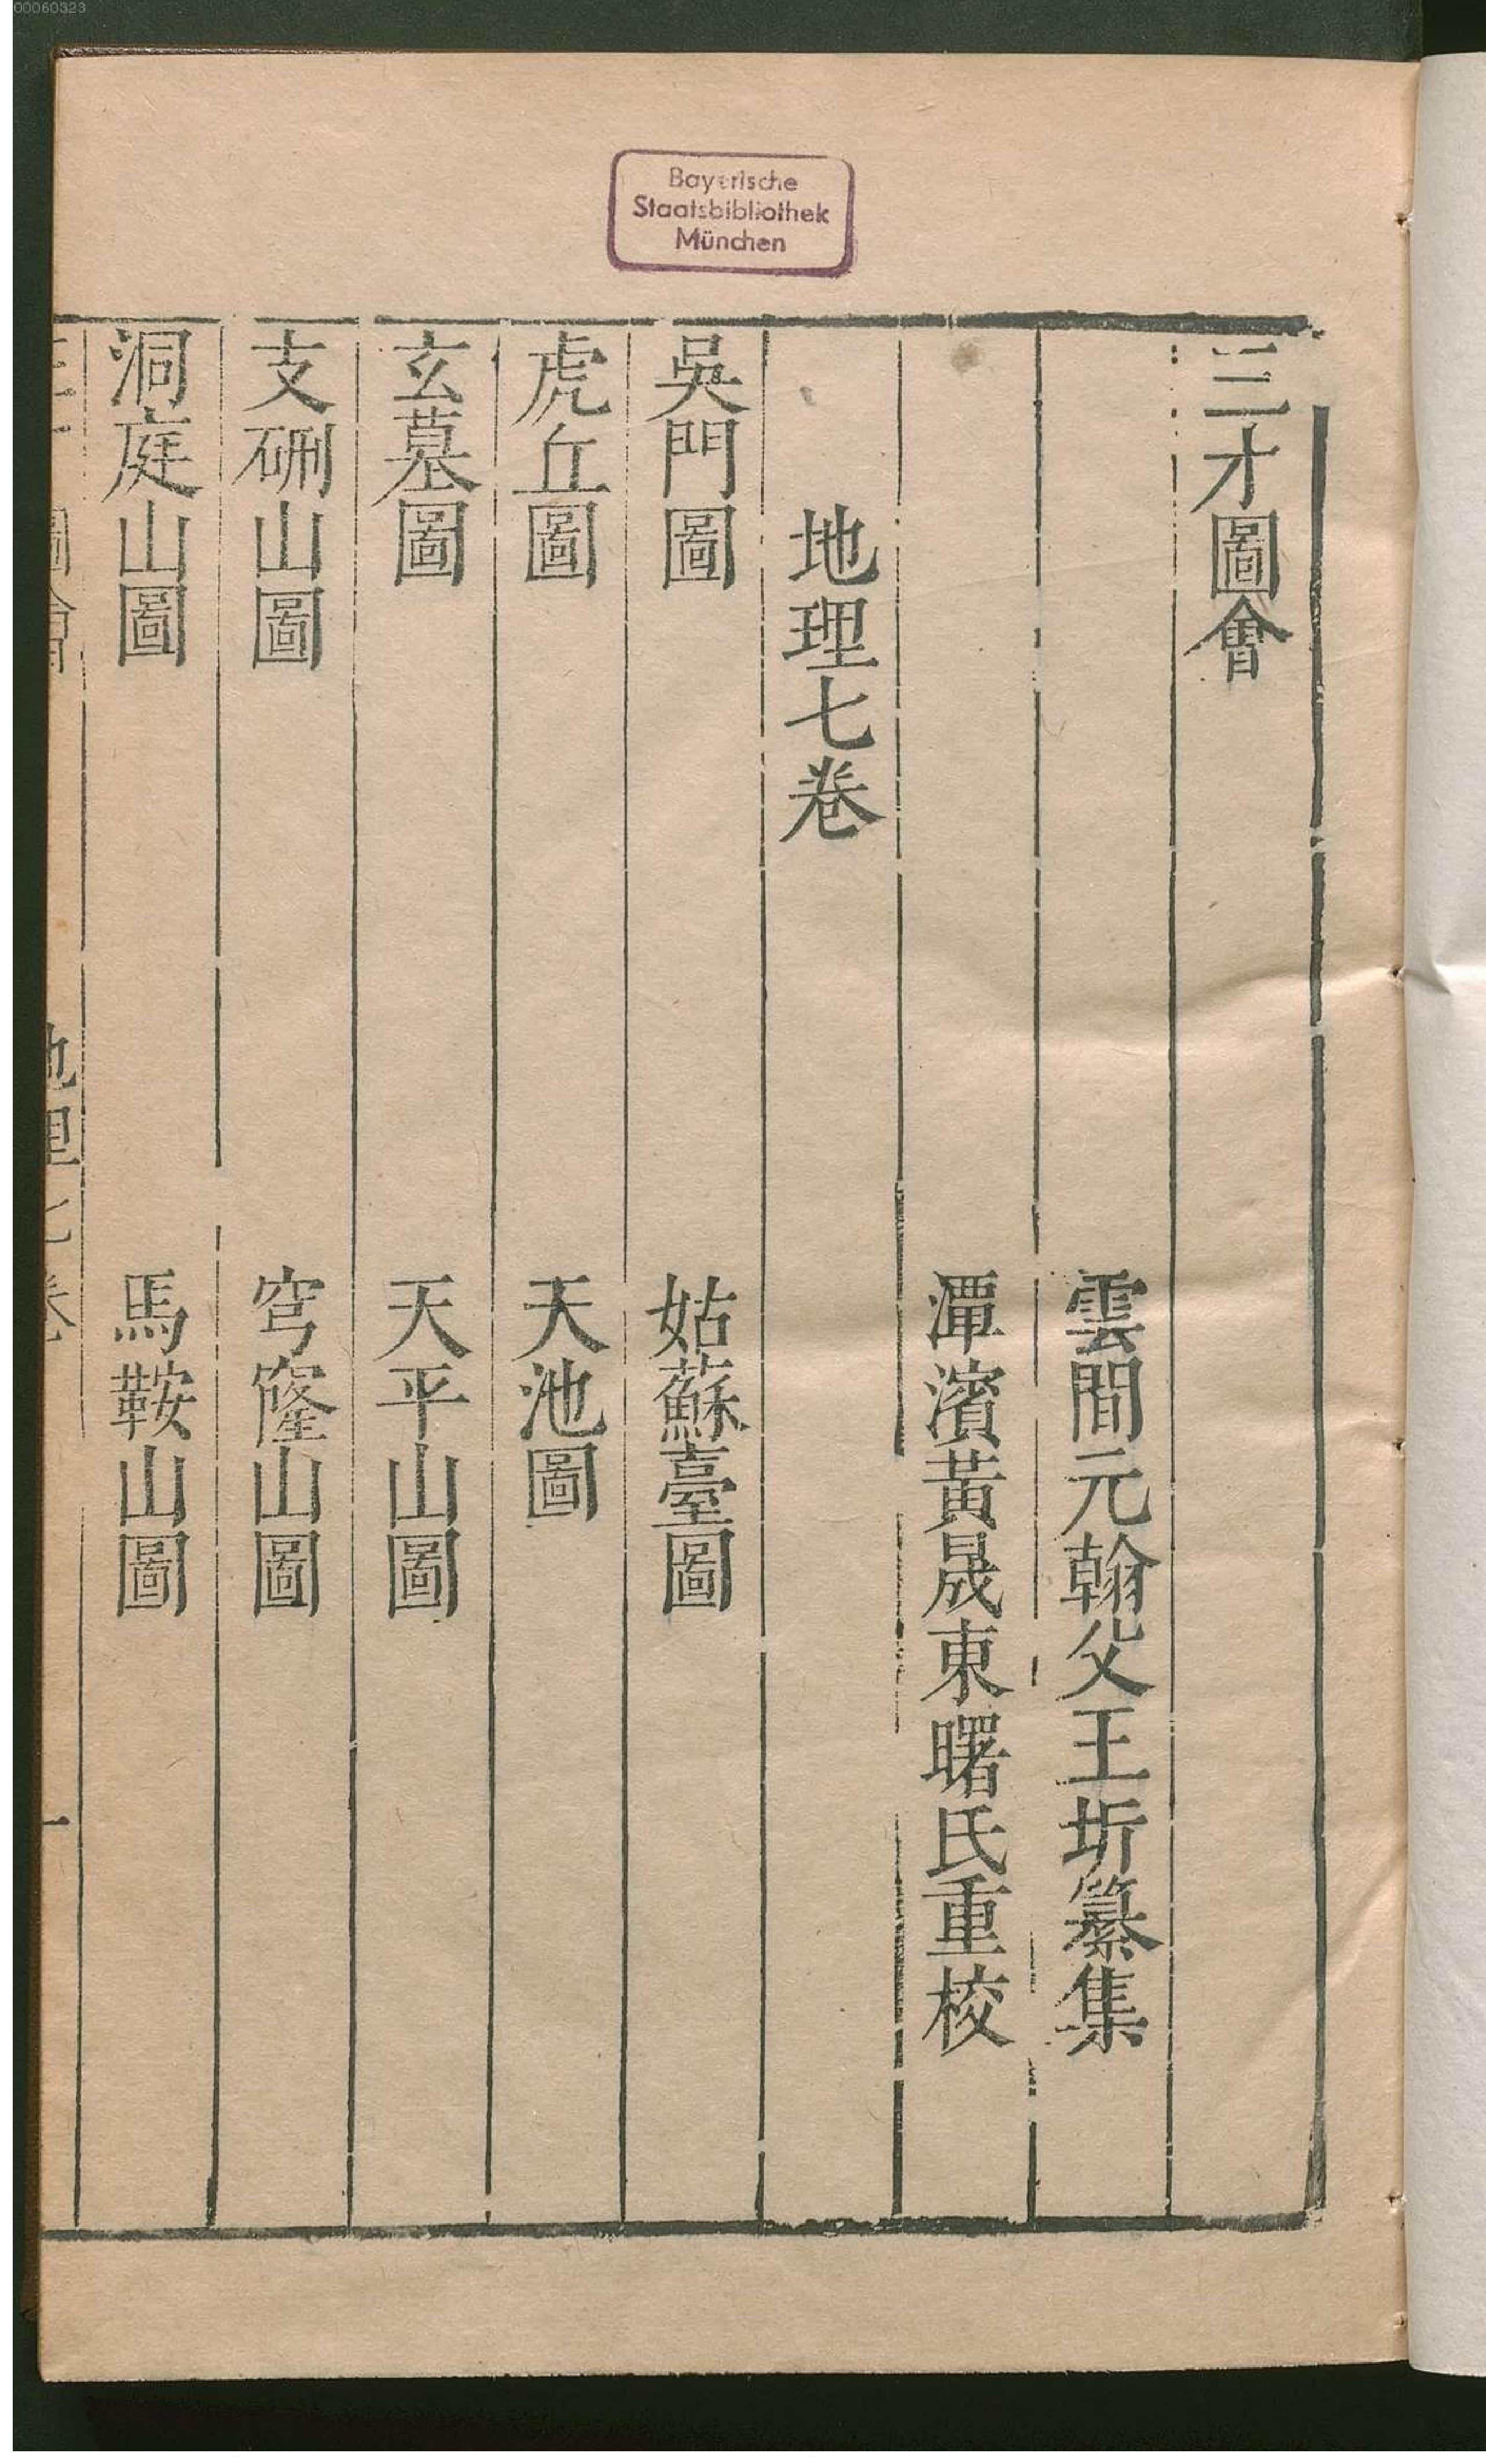 00060323
Bayerische
Staatsbibliothek
München
三才圖會
雲間元翰父王圻纂集
潭濱黃晟東曙氏重校
地理七卷
吳門圖 姑蘇臺圖
虎丘圖 天池圖
玄墓圖 天平山圖
支硎山圖 穹窿山圖
洞庭山圖 馬鞍山圖
三才圖會 地理七卷 一